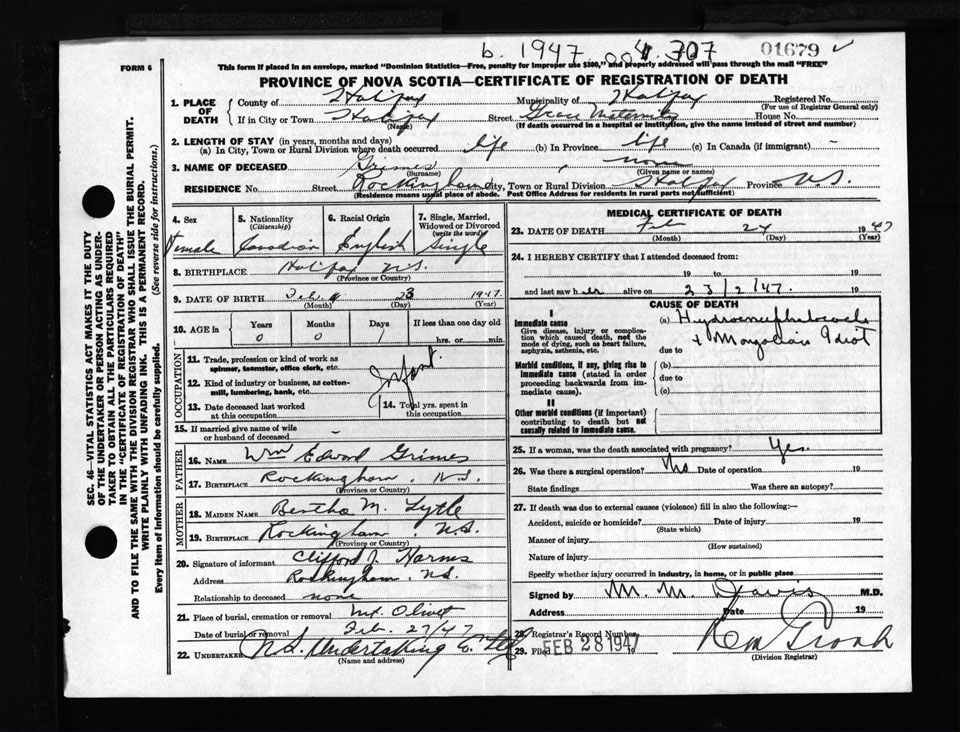 b. 1947 004307 01679
FORM 6
This form if placed in an envelope, marked "Dominion Statistics—Free, penalty for improper use $300," and properly addressed will pass through the mail "FREE"
PROVINCE OF NOVA SCOTIA—CERTIFICATE OF REGISTRATION OF DEATH
1. PLACE OF DEATH { County of Halifax Municipality of Halifax Registered No.
(For use of Registrar General only)
If in City or Town Halifax Street Grace Maternity House No.
(Name) (If death occurred in a hospital or institution, give the name instead of street and number)
2. LENGTH OF STAY (in years, months and days)
(a) In City, Town or Rural Division where death occurred life (b) In Province life (c) In Canada (if immigrant) –
3. NAME OF DECEASED Grimes, none
(Surname) (Given name or names)
RESIDENCE No. Street Rockingham City, Town or Rural Division Halifax Province N.S.
(Residence means usual place of abode. Post Office Address for residents in rural parts not sufficient)
4. Sex 5. Nationality 6. Racial Origin 7. Single, Married,
(Citizenship) Widowed or Divorced
(write the word)
Female Canadian English Single
8. BIRTHPLACE Halifax N.S.
(Province or Country)
9. DATE OF BIRTH Feb. 23 1947
(Month) (Day) (Year)
10. AGE in { Years Months Days If less than one day old
0 0 1 hrs. or min.
OCCUPATION
11. Trade, profession or kind of work as
spinner, teamster, office clerk, etc.
12. Kind of industry or business, as cotton-
mill, lumbering, bank, etc.
Infant
13. Date deceased last worked
at this occupation
14. Total yrs. spent in
this occupation
15. If married give name of wife
or husband of deceased –
FATHER
16. Name Wm Edward Grimes
17. Birthplace Rockingham, N.S.
(Province or Country)
MOTHER
18. Maiden Name Bertha M. Lytle
19. Birthplace Rockingham, N.S.
(Province or Country)
20. Signature of informant Clifford J. Harms
Address Rockingham, N.S.
Relationship to deceased none
21. Place of burial, cremation or removal Mt. Olivet
Date of burial or removal Feb. 27/47
22. UNDERTAKER N.S. Undertaking Co. Ltd
(Name and address)
MEDICAL CERTIFICATE OF DEATH
23. DATE OF DEATH Feb 24 1947
(Month) (Day) (Year)
24. I HEREBY CERTIFY that I attended deceased from:
19 to 19
and last saw her alive on 23/2/47. 19
CAUSE OF DEATH
I
Immediate cause
Give disease, injury or complica-
tion which caused death, not the
mode of dying, such as heart failure,
asphyxia, asthenia, etc.
(a) Hydrocephalocele
+ Mongolian Idiot
due to
Morbid conditions, if any, giving rise to
immediate cause (stated in order
proceeding backwards from im-
mediate cause).
(b)
due to
(c)
II
Other morbid conditions (if important)
contributing to death but not
causally related to immediate cause.
25. If a woman, was the death associated with pregnancy? Yes.
26. Was there a surgical operation? No Date of operation 19
State findings Was there an autopsy?
27. If death was due to external causes (violence) fill in also the following:—
Accident, suicide or homicide? Date of injury 19
(State which)
Manner of injury
(How sustained)
Nature of injury
Specify whether injury occurred in industry, in home, or in public place
Signed by M. M. Davis M.D.
Address Date 19
28. Registrar's Record Number
29. Filed FEB 28 1947
(Division Registrar)
SEC. 46—VITAL STATISTICS ACT MAKES IT THE DUTY
OF THE UNDERTAKER OR PERSON ACTING AS UNDER-
TAKER TO OBTAIN ALL THE PARTICULARS REQUIRED
IN THE "CERTIFICATE OF REGISTRATION OF DEATH"
AND TO FILE THE SAME WITH THE DIVISION REGISTRAR WHO SHALL ISSUE THE BURIAL PERMIT.
WRITE PLAINLY WITH UNFADING INK. THIS IS A PERMANENT RECORD.
Every item of information should be carefully supplied. (See reverse side for instructions)